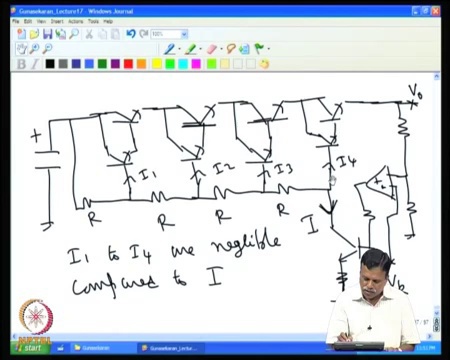 Gunasekaran_Lecture17 - Windows Journal
File Edit View Insert Actions Tools Help
V0
I1 I2 I3 I4
R R R R
I
I1 to I4 are neglible
compared to I
start
Gunasekaran
Gunasekaran_Lectu...